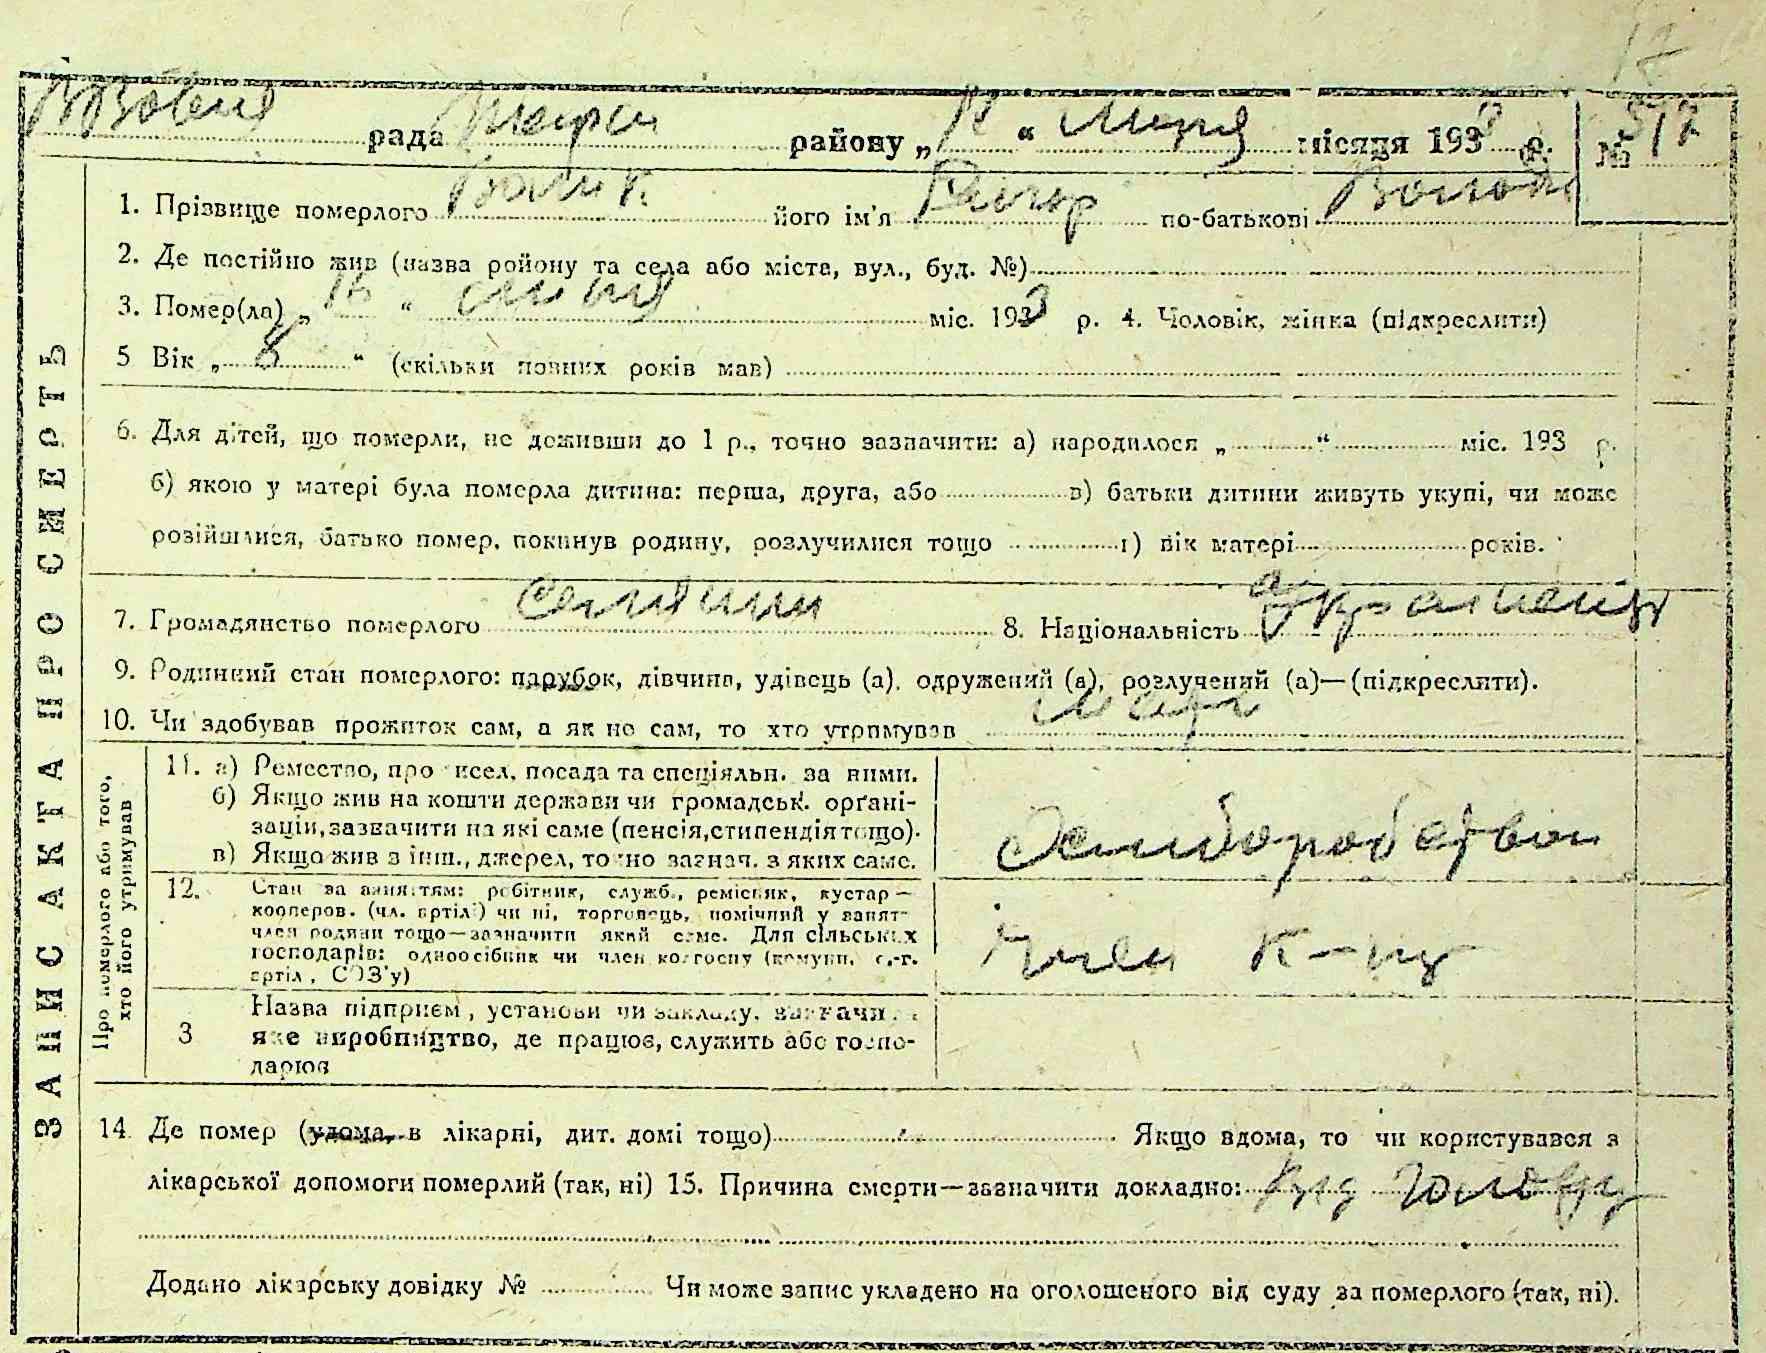 рада району „ “ місяця 193 р. №
1. Прізвище померлого його ім'я по-батькові
2. Де постійно жив (назва району та села або міста, вул., буд. №)
3. Помер(ла) „ 16 “ міс. 1933 р. 4. Чоловік, жінка (підкреслити)
5 Вік „ 8 “ (скільки повних років мав)
6. Для дітей, що померли, не доживши до 1 р., точно зазначити: а) народилося „ “ міс. 193 р.
б) якою у матері була померла дитина: перша, друга, або в) батьки дитини живуть укупі, чи може
розійшлися, батько помер, покинув родину, розлучилися тощо г) вік матері років.
7. Громадянство померлого селянин 8. Національність українець
9. Родинний стан померлого: парубок, дівчина, удівець (а), одружений (а), розлучений (а)—(підкреслити).
10. Чи здобував прожиток сам, а як не сам, то хто утримував
ЗАПИС АКТА ПРО СМЕРТЬ
Про померлого або того, хто його утримував
11. а) Ремество, промисел, посада та спеціяльн. за ними.
б) Якщо жив на кошти держави чи громадськ. орґані-
зацій, зазначити на які саме (пенсія, стипендія тощо).
в) Якщо жив з інш., джерел, точно зазнач. з яких саме.
12. Стан за заняттям: робітник, служб., ремісник, кустар—
кооперов. (чл. артілі) чи ні, торговець, помічний у занят-
члєн родини тощо—зазначити який саме. Для сільських
господарів: одноосібник чи член колгоспу (комуни, с.-г.
артіл, СОЗ'у)
член к-пу
3 Назва підприєм, установи чи закладу, зазначи
яке виробництво, де працює, служить або госпо-
дарює
14. Де помер (удома, в лікарні, дит. домі тощо) Якщо вдома, то чи користувався з
лікарської допомоги померлий (так, ні) 15. Причина смерти—зазначити докладно: від голоду
Додано лікарську довідку № Чи може запис укладено на оголошеного від суду за померлого (так, ні).